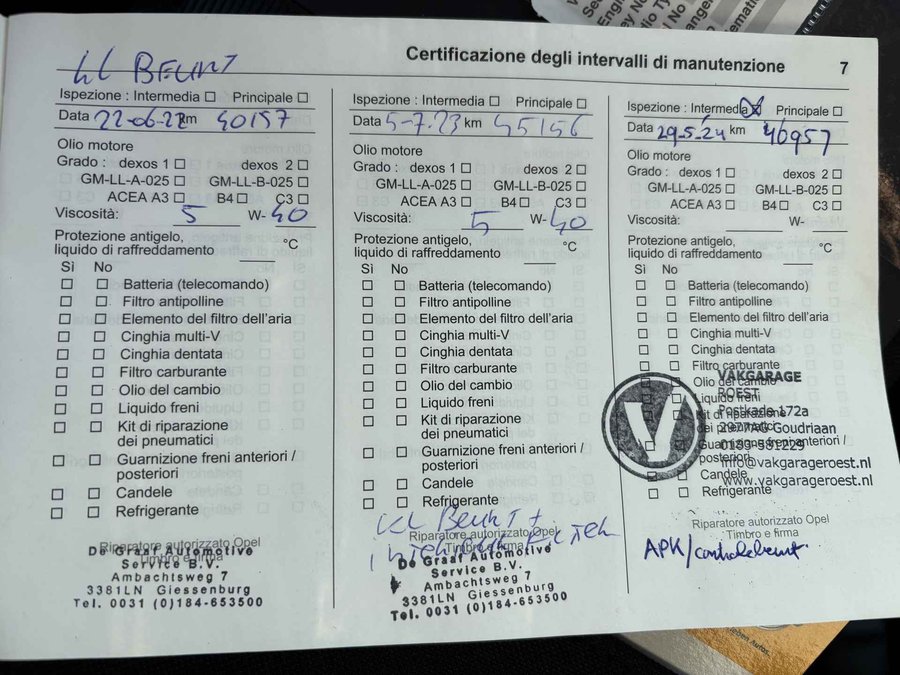 Certificazione degli intervalli di manutenzione 7
KL BEURT
Ispezione : Intermedia Principale
Data 22-06-22 km 40157
Olio motore
Grado : dexos 1 dexos 2
GM-LL-A-025 GM-LL-B-025
ACEA A3 B4 C3
Viscosità: 5 W- 40
Protezione antigelo,
liquido di raffreddamento °C
Sì No
Batteria (telecomando)
Filtro antipolline
Elemento del filtro dell'aria
Cinghia multi-V
Cinghia dentata
Filtro carburante
Olio del cambio
Liquido freni
Kit di riparazione
dei pneumatici
Guarnizione freni anteriori /
posteriori
Candele
Refrigerante
Riparatore autorizzato Opel
Timbro e firma
De Graaf Automotive
Service B.V.
Ambachtsweg 7
3381LN Giessenburg
Tel. 0031 (0)184-653500
Ispezione : Intermedia Principale
Data 5-7-23 km 45156
Olio motore
Grado : dexos 1 dexos 2
GM-LL-A-025 GM-LL-B-025
ACEA A3 B4 C3
Viscosità: 5 W- 40
Protezione antigelo,
liquido di raffreddamento °C
Sì No
Batteria (telecomando)
Filtro antipolline
Elemento del filtro dell'aria
Cinghia multi-V
Cinghia dentata
Filtro carburante
Olio del cambio
Liquido freni
Kit di riparazione
dei pneumatici
Guarnizione freni anteriori /
posteriori
Candele
Refrigerante
KL BEURT +
Riparatore autorizzato Opel
Timbro e firma
De Graaf Automotive
Service B.V.
Ambachtsweg 7
3381LN Giessenburg
Tel. 0031 (0)184-653500
Ispezione : Intermedia Principale
Data 29-5-24 km 46957
Olio motore
Grado : dexos 1 dexos 2
GM-LL-A-025 GM-LL-B-025
ACEA A3 B4 C3
Viscosità: W-
Protezione antigelo,
liquido di raffreddamento °C
Sì No
Batteria (telecomando)
Filtro antipolline
Elemento del filtro dell'aria
Cinghia multi-V
Cinghia dentata
Filtro carburante
Olio del cambio
Liquido freni
Kit di riparazione
dei pneumatici
Guarnizione freni anteriori /
posteriori
Candele
Refrigerante
V
VAKGARAGE
ROEST
Postkade 172a
2977AG Goudriaan
0183-581229
info@vakgarageroest.nl
www.vakgarageroest.nl
Riparatore autorizzato Opel
Timbro e firma
APK/controlebeurt.